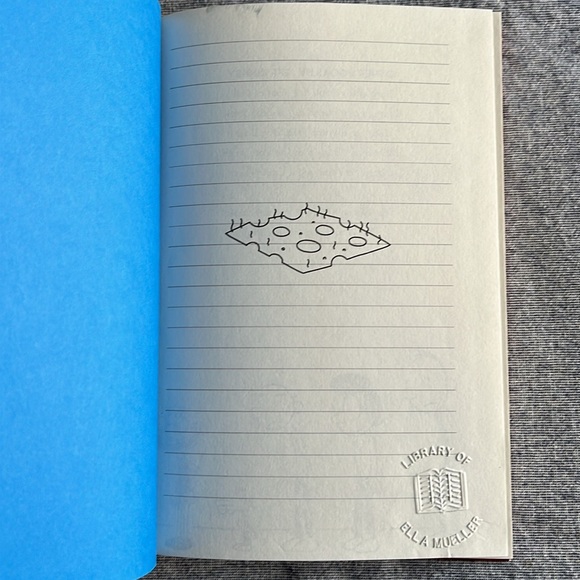 LIBRARY OF
ELLA MUELLER